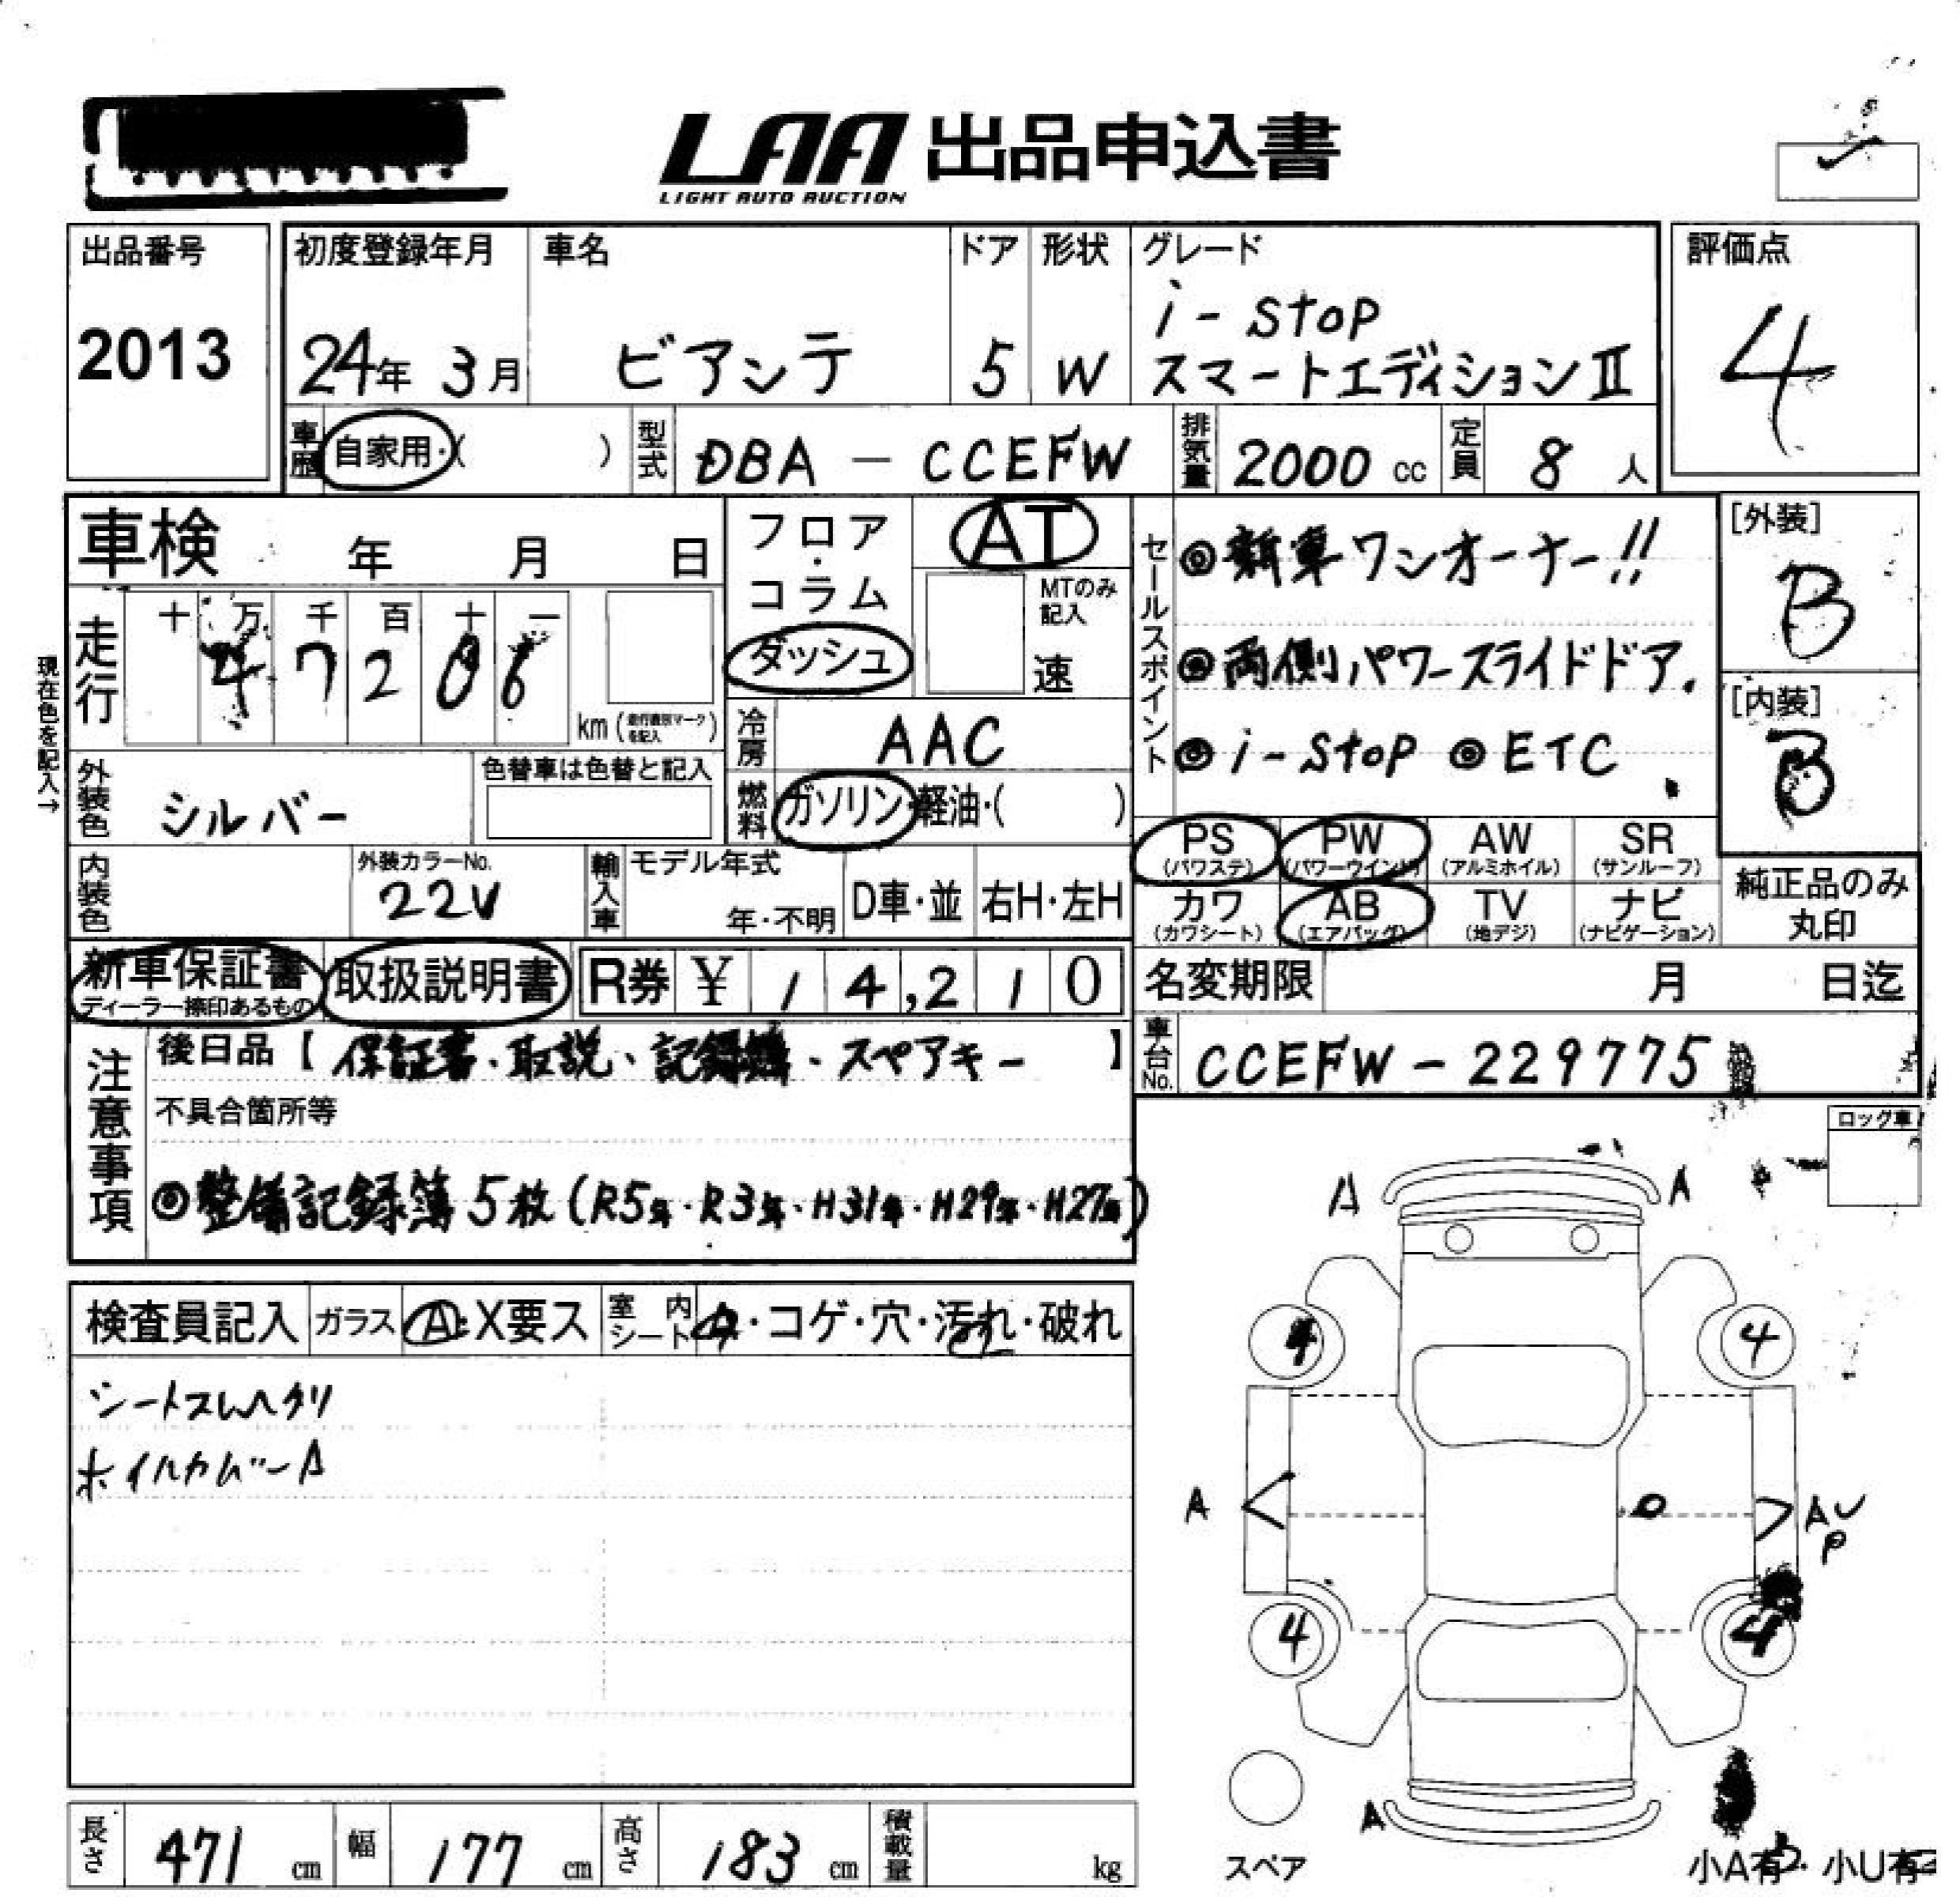 LAA 出品申込書
LIGHT AUTO AUCTION
出品番号
2013
初度登録年月
24年 3月
車名
ビアンテ
ドア
5
形状
W
グレード
i-stop
スマートエディションⅡ
評価点
4
車歴
自家用・( )
型式
DBA - CCEFW
排気量
2000 cc
定員
8 人
車検 年 月 日
フロア・コラム
ダッシュ
AT
MTのみ記入
速
セールスポイント
◎新車ワンオーナー!!
◎両側パワースライドドア.
◎i-stop ◎ETC
[外装]
B
[内装]
B
現在色を記入→
走行
十 万 千 百 十 一
4 7 2 0 6
km (走行農別マーク
を記入)
冷房
AAC
外装色
シルバー
色替車は色替と記入
燃料
ガソリン・軽油・( )
PS
(パワステ)
PW
(パワーウインド)
AW
(アルミホイル)
SR
(サンルーフ)
内装色
外装カラーNo.
22V
輸入車
モデル年式
年・不明
D車・並
右H・左H
カワ
(カワシート)
AB
(エアバッグ)
TV
(地デジ)
ナビ
(ナビゲーション)
純正品のみ
丸印
新車保証書
ディーラー捺印あるもの
取扱説明書
R券 ¥ 14,210
名変期限 月 日迄
注意事項
後日品【保証書・取説、記録簿・スペアキー】
車台No.
CCEFW-229775
不具合箇所等
◎整備記録簿5枚(R5年・R3年・H31年・H29年・H27年)
ロック車
A A
検査員記入
ガラス
A・X要ス
室内シート
・コゲ・穴・汚れ・破れ
シートスレヘタリ
ホイルカバーA
4 4
A
AU
P
4 4
A
スペア
小A有・小U有
長さ
471 cm
幅
177 cm
高さ
183 cm
積載量
kg